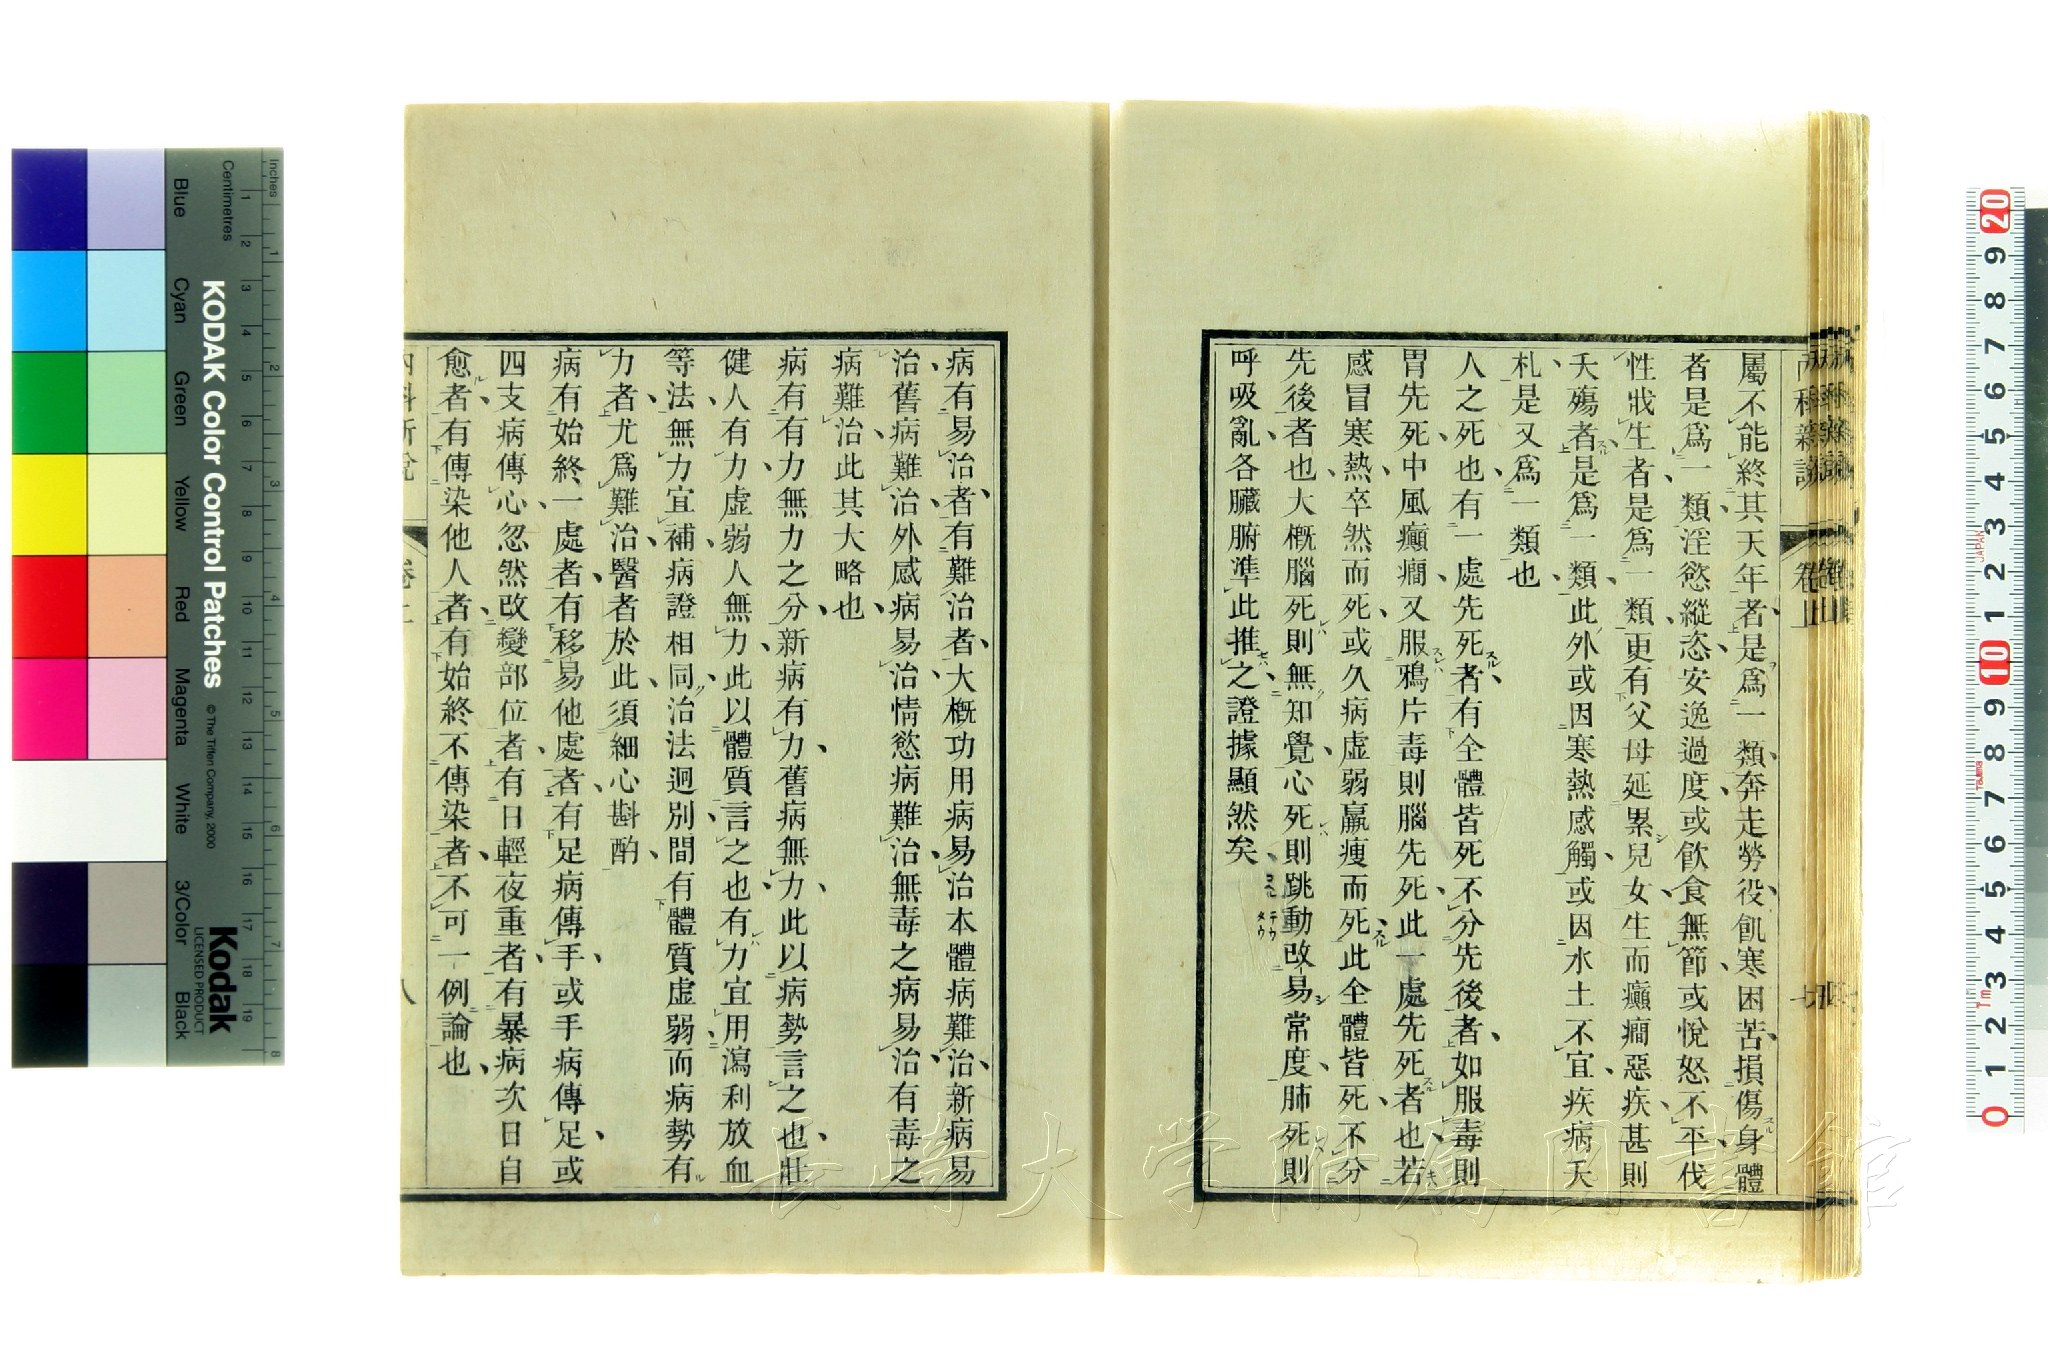 屬不能終其天年者是爲一類奔走勞役飢寒困苦損傷身體
者是爲一類淫慾縱恣安逸過度或飮食無節或悅怒不平伐
性戕生者是爲一類更有父母延累兒女生而癲癎惡疾甚則
夭殤者是爲一類此外或因寒熱感觸或因水土不宜疾病夭
札是又爲一類也
人之死也有一處先死者有全體皆死不分先後者如服毒則
胃先死中風癲癎又服鴉片毒則腦先死此一處先死者也若
感冒寒熱卒然而死或久病虛弱羸瘦而死此全體皆死不分
先後者也大槪腦死則無知覺心死則跳動改易常度肺死則
呼吸亂各臟腑準此推之證據顯然矣
病有易治者有難治者大槪功用病易治本體病難治新病易
治舊病難治外感病易治情慾病難治無毒之病易治有毒之
病難治此其大略也
病有有力無力之分新病有力舊病無力此以病勢言之也壯
健人有力虛弱人無力此以體質言之也有力宜用瀉利放血
等法無力宜補病證相同治法迥別間有體質虛弱而病勢有
力者尤爲難治醫者於此須細心斟酌
病有始終一處者有移易他處者有足病傳手或手病傳足或
四支病傳心忽然改變部位者有日輕夜重者有暴病次日自
愈者有傳染他人者有始終不傳染者不可一例論也
內科新說
卷上
八
長崎大学附属図書館
Inches
Centimetres
KODAK Color Control Patches
© The Tiffen Company, 2000
Kodak
LICENSED PRODUCT
Blue
Cyan
Green
Yellow
Red
Magenta
White
3/Color
Black
1 2 3 4 5 6 7 8 9 10 11 12 13 14 15 16 17 18 19
1 2 3 4 5 6 7 8
20 9 8 7 6 5 4 3 2 1 10 9 8 7 6 5 4 3 2 1 0
JAPAN
Tajima